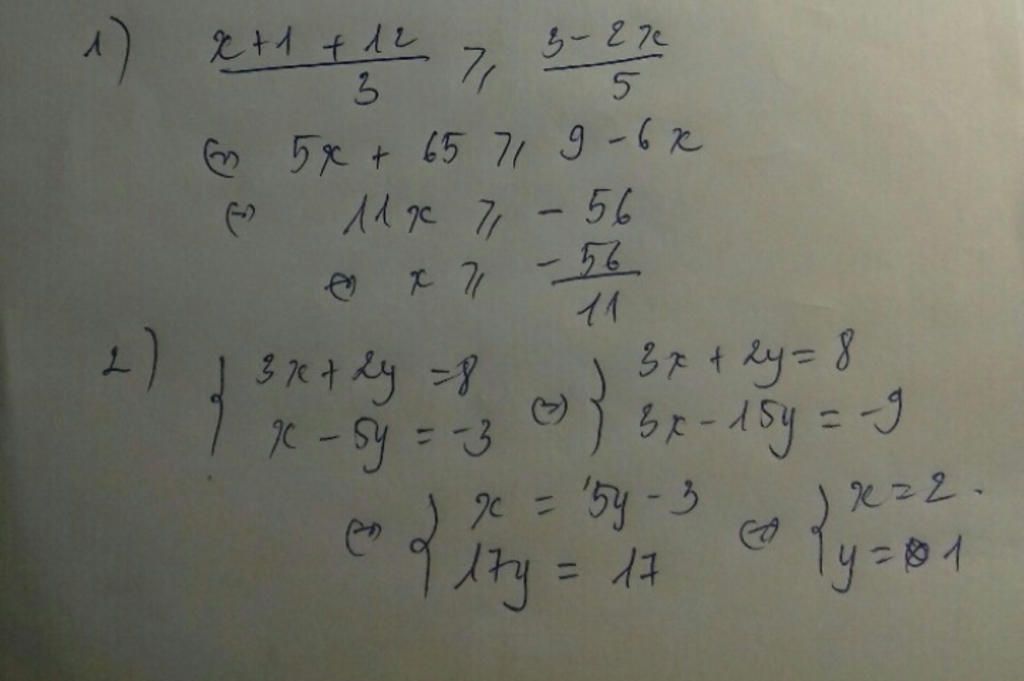 1) (x+1+12)/3 ⩾ (3-2x)/5
⇔ 5x + 65 ⩾ 9 - 6x
⇔ 11x ⩾ -56
⇔ x ⩾ -56/11
2) { 3x+2y = 8 ⇔ { 3x + 2y = 8
x - 5y = -3 3x - 15y = -9
⇔ { x = 5y - 3 ⇔ { x = 2.
17y = 17 y = 1